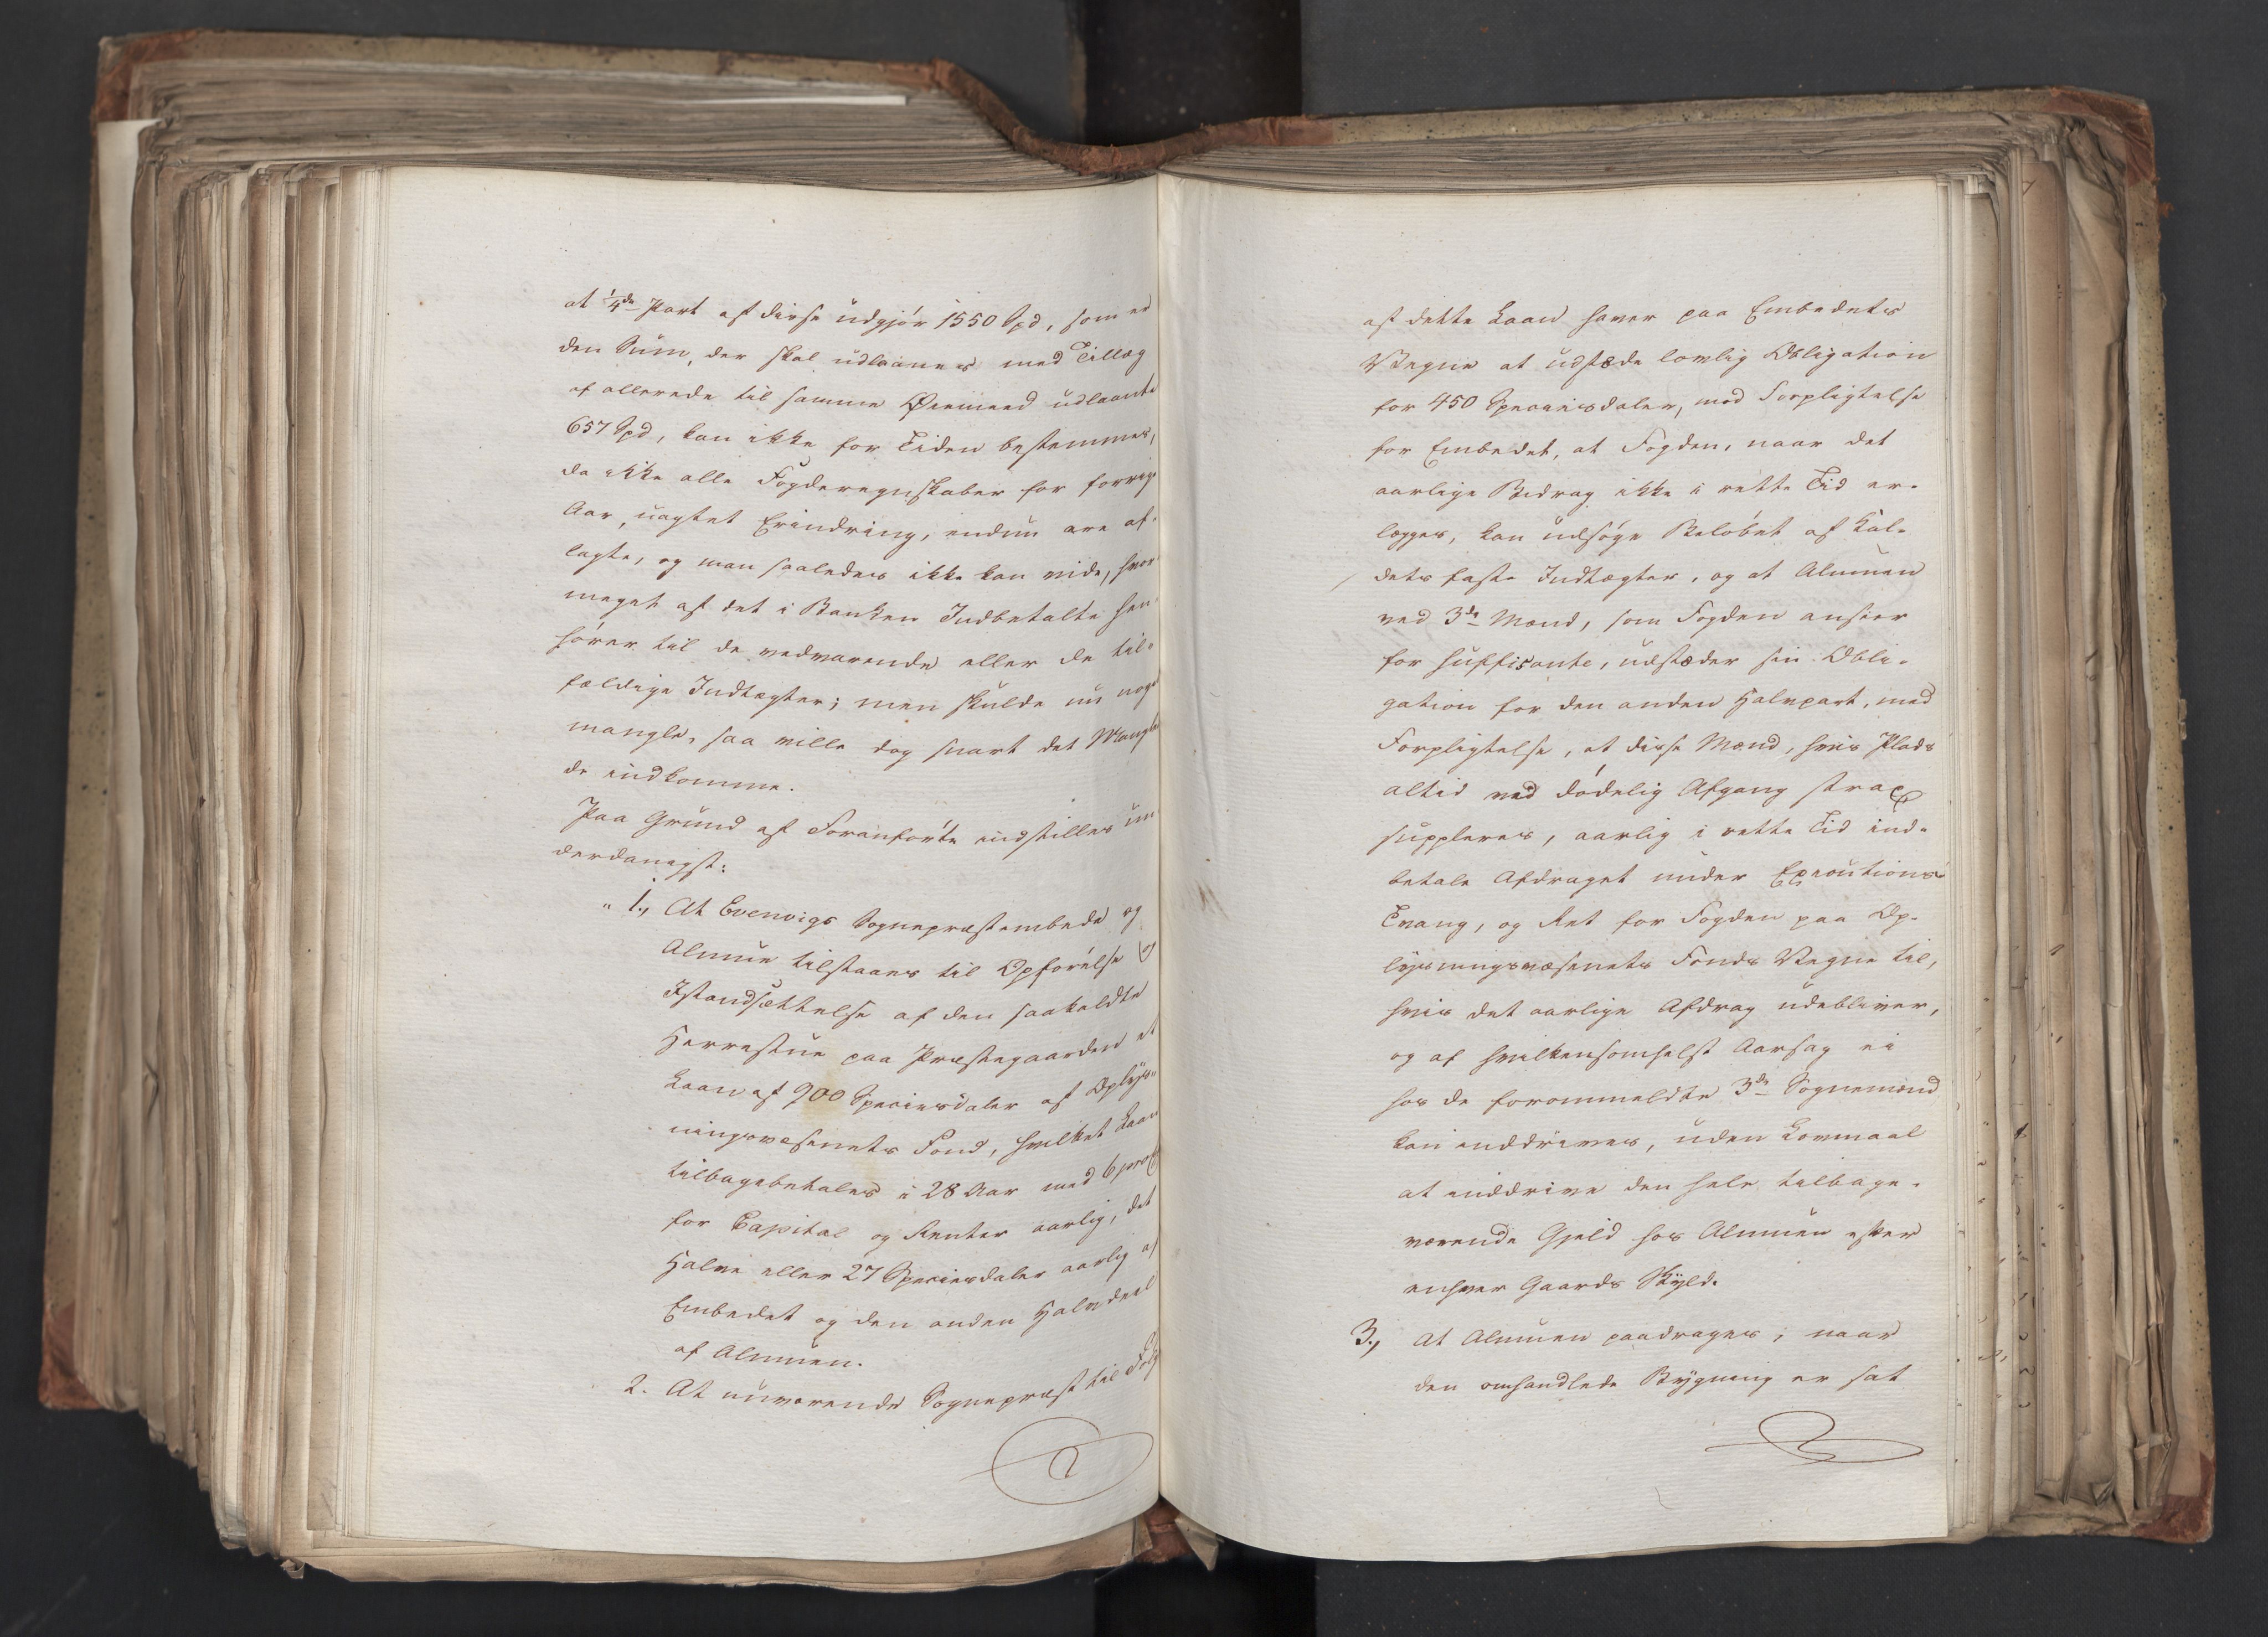 at 1/4de Part af disse udgjør 1550 Spd, som er
den Sum, der skal udlaanes med Tillæg
af allerede til samme Øiemeed udlaante
657 Spd, kan ikke for Tiden bestemmes,
da ikke alle Fogderegnskaber for forrige
Aar, uagtet Erindring, endnu ere af-
lagte, og man saaledes ikke kan vide, hvor
meget af det i Banken Indbetalte hen-
hører til de vedvarende eller de til-
fældige Indtægter; men skulde nu noget
mangle, saa ville dog snart det Mangle
de indkomme.
Paa Grund af Foranførte indstilles un
derdanigst:
" 1., At Evenvigs Sognepræstembede og
Almue tilstaaes til Opførelse og
Istandsættelse af den saakaldte
Herrestue paa Præstegaarden et
Laan af 900 Speciesdaler af Oplys-
ningsvæsenets Fond, hvilket Laan
tilbagebetales i 28 Aar med 6 proC
for Capital og Renter aarlig, det
Halve eller 27 Speciesdaler aarlig af
Embedet og den anden Halvdeel
af Almuen.
2. At nuværende Sognepræst til Følge
af dette Laan haver paa Embedets
Vegne at udstæde lovlig Obligation
for 450 Speciesdaler, med Forpligtelse
for Embedet, at Fogden, naar det
aarlige Bidrag ikke i rette Tid er-
lægges, kan udsøge Beløbet af Kal-
dets faste Indtægter, og at Almuen
ved 3de Mænd, som Fogden ansier
for suffisante, udstæder sin Obli-
gation for den anden Halvpart, med
Forpligtelse, at disse Mænd, hvis Plads
altid ved dødelig Afgang strax
suppleres, aarlig i rette Tid ind-
betale Afdraget under Executions
Tvang, og Ret for Fogden paa Op-
lysningsvæsenets Fonds Vegne til,
hvis det aarlige Afdrag udebliver,
og af hvilkensomhelst Aarsag ei
hos de forommeldte 3de Sognemænd
kan inddrives, uden Lovmaal
at inddrive den hele tilbage-
værende Gjeld hos Almuen efter
enhver Gaards Skyld.
3., At Almuen paadrages, naar
den omhandlede Bygning er sat